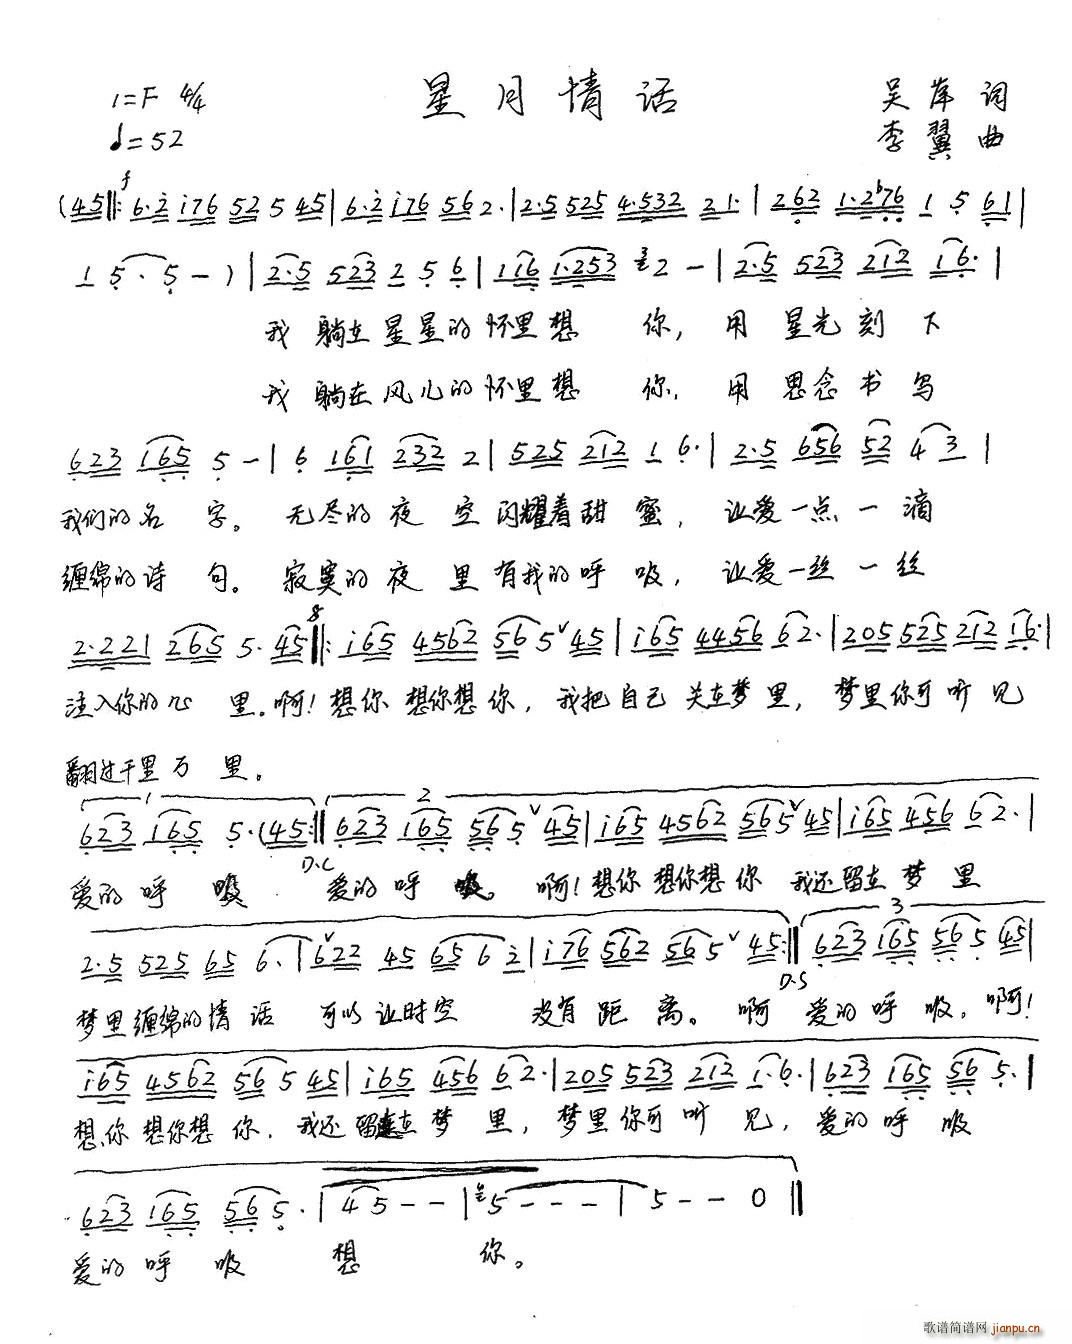 星月情话
1=F 4/4
♩=52
吴岸 词
李翼 曲
f
(45‖: 6·2 i76 52 5 45 | 6·2 i76 56 2· | 2·5 525 4·532 2 1· | 262 1·2♭76 1 5 61 |
1 5· 5 - ) | 2·5 523 2 5 6 | 116 1·253 2 - | 2·5 523 212 16· |
我 躺在星星的怀里想 你, 用 星光刻 下
我 躺在风儿的怀里想 你, 用 思念书写
623 165 5 - | 6 161 232 2 | 525 212 1 6· | 2·5 656 52 4 3 |
我们的名 字。 无尽的夜 空闪耀着甜 蜜, 让爱一点一滴
缠绵的诗 句。 寂寞的夜 里有我的呼 吸, 让爱一丝一丝
2·221 265 5· 45 ‖: i65 4562 56 5 ∨ 45 | i65 4456 62· | 205 525 212 16· |
注入你的心 里。啊! 想你 想你想你, 我把自己 关在梦里, 梦里你可听见
翻过千里万 里。
1 2
623 165 5· (45 :‖ 623 165 56 5 ∨ 45 | i65 4562 56 5 ∨ 45 | i65 456 62· |
D.C
爱的呼 吸 爱的呼 吸。 啊! 想你 想你想你 我还留在梦里
3
2·5 525 65 6· | i ∨ 22 45 65 6 2 | i76 562 56 5 ∨ 45 :‖ 623 165 56 5 45 |
D.S
梦里缠绵的情话 可以让时空 没有距离。 啊 爱的呼 吸, 啊!
i65 4562 56 5 45 | i65 456 62· | 205 523 212 1·6· | 623 165 56 5· |
想你 想你想你, 我还留在梦里, 梦里你可听见, 爱的呼吸
623 165 56 5· | 4 5 - - | 5 - - - | 5 - - 0 ‖
爱的呼吸 想 你。
歌谱简谱网
jianpu.cn